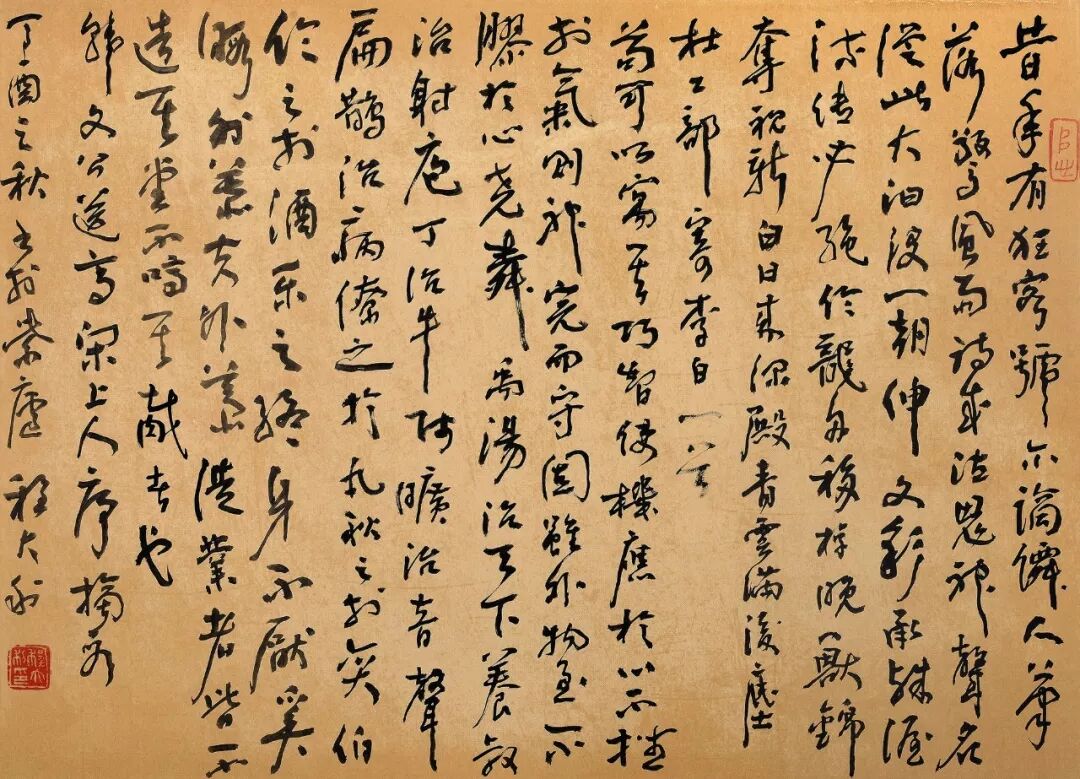 昔年有狂客號尓謫僊人筆
落驚風雨詩成泣鬼神聲名
從此大汩没一朝伸文彩承殊渥
流傳必絶倫龍舟移棹晚獸錦
奪袍新白日来深殿青雲滿後塵
杜工部寄李白一首
苟可以寓其巧智使機應於心不挫
於氣則神完而守固雖外物至不
膠於心堯舜禹湯治天下養叔
治射庖丁治牛師曠治音聲
扁鵲治病僚之於丸秋之於奕伯
倫之於酒樂之終身不厭奚
暇外慕夫外慕徙業者皆不
造其堂不嚌其胾者也
韓文公送高閑上人序摘
丁酉之秋書於紫廬程大利
程大利印